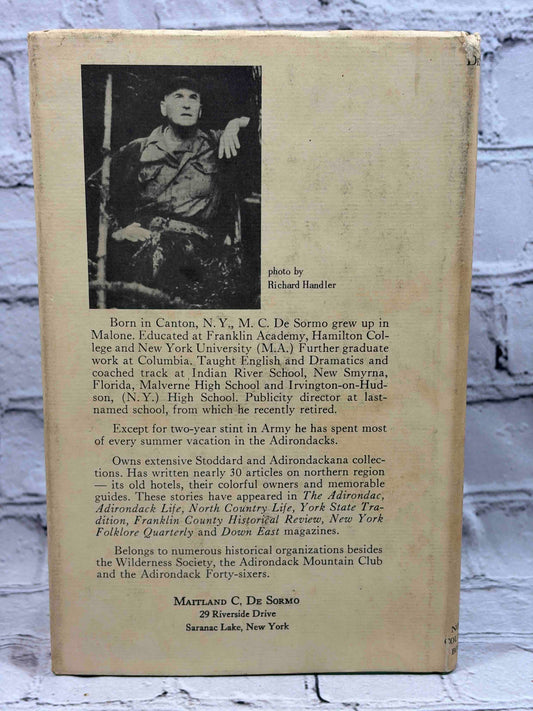 photo by
Richard Handler
Born in Canton, N. Y., M. C. De Sormo grew up in
Malone. Educated at Franklin Academy, Hamilton Col-
lege and New York University (M.A.) Further graduate
work at Columbia. Taught English and Dramatics and
coached track at Indian River School, New Smyrna,
Florida, Malverne High School and Irvington-on-Hud-
son, (N. Y.) High School. Publicity director at last-
named school, from which he recently retired.
Except for two-year stint in Army he has spent most
of every summer vacation in the Adirondacks.
Owns extensive Stoddard and Adirondackana collec-
tions. Has written nearly 30 articles on northern region
— its old hotels, their colorful owners and memorable
guides. These stories have appeared in The Adirondac,
Adirondack Life, North Country Life, York State Tra-
dition, Franklin County Historical Review, New York
Folklore Quarterly and Down East magazines.
Belongs to numerous historical organizations besides
the Wilderness Society, the Adirondack Mountain Club
and the Adirondack Forty-sixers.
MAITLAND C. DE SORMO
29 Riverside Drive
Saranac Lake, New York